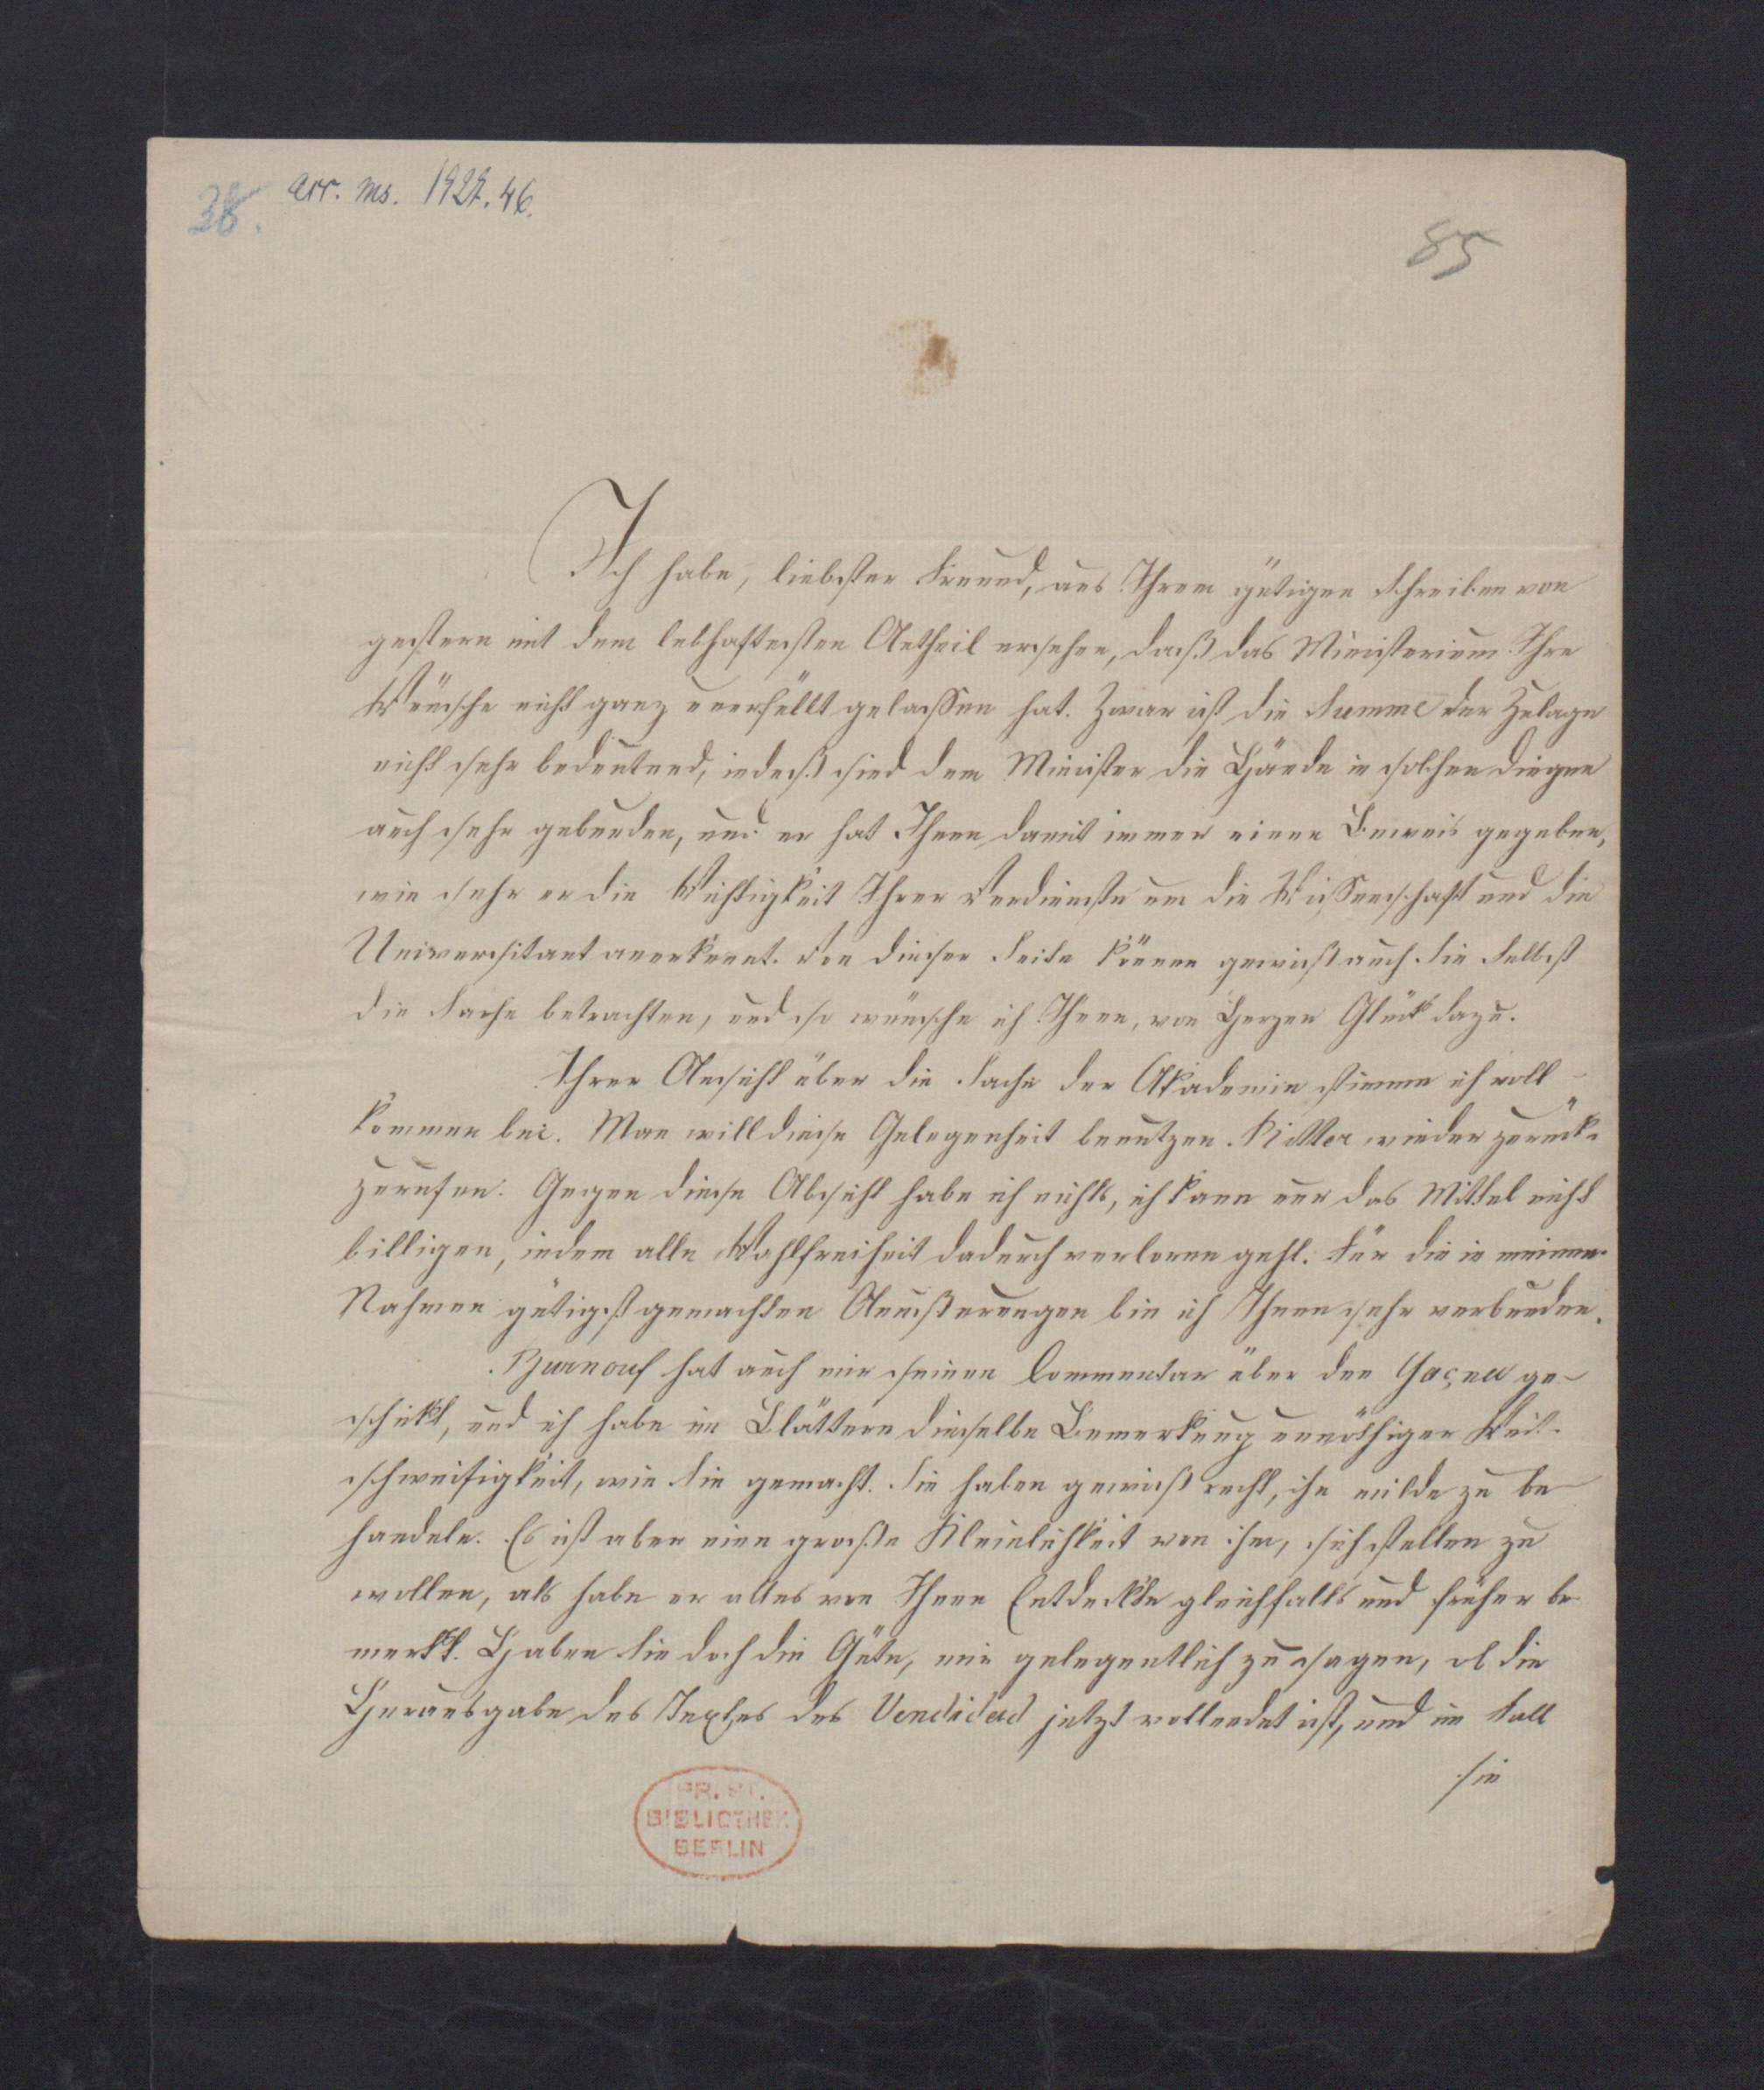 38.
acc. ms. 1927. 46.
85
Ich habe, liebster Freund, aus Ihrem gütigen Schreiben von
gestern mit dem lebhaftesten Antheil ersehen, daß das Ministerium Ihre
Wünsche nicht ganz unerfüllt gelassen hat. Zwar ist die Summe der Zulage
nicht sehr bedeutend, indeß sind dem Minister die Hände in solchen Dingen
auch sehr gebunden, und er hat Ihnen damit immer einen Beweis gegeben,
wie sehr er die Wichtigkeit Ihrer Verdienste um die Wissenschaft und die
Universitaet anerkennt. Von dieser Seite können gewiß auch Sie Selbst
die Sache betrachten, und so wünsche ich Ihnen, von Herzen Glück dazu.
Ihrer Ansicht über die Sache der Akademie stimme ich voll-
kommen bei. Man will diese Gelegenheit benutzen Ritter wieder zurück-
zurufen. Gegen diese Absicht habe ich nichts, ich kann nur das Mittel nicht
billigen, indem alle Wahlfreiheit dadurch verloren geht. Für die in meinem
Nahmen gütigst gemachten Aeußerungen bin ich Ihnen sehr verbunden.
Burnouf hat auch mir seinen Commentar über den Yaçna ge-
schickt, und ich habe im Blättern dieselbe Bemerkung unnöthiger Weit-
schweifigkeit, wie Sie gemacht. Sie haben gewiß recht, ihn milde zu be-
handeln. Es ist aber eine große Kleinlichkeit von ihm, sich stellen zu
wollen, als habe er alles von Ihnen Entdeckte gleichfalls und früher be-
merkt. Haben Sie doch die Güte, mir gelegentlich zu sagen, ob die
Herausgabe des Textes des Vendidad jetzt vollendet ist, und im Fall
sie
PR. ST.
BIBLIOTHEK
BERLIN